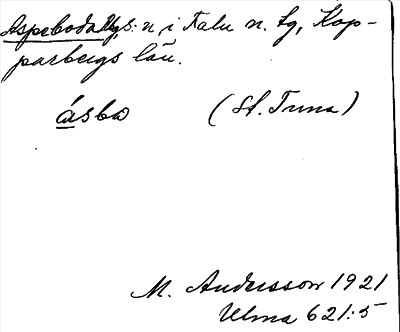 Aspeboda Kys: n i Falu n. tg, Kop-
parbergs län.
ásbo (St. Tuna)
M. Andersson 1921
Ulma 621:5